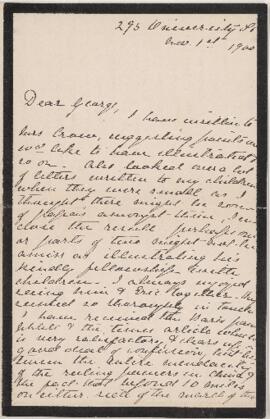 295 University St
Nov. 1st 1900
Dear George,
I have written to
Mrs Crow, suggesting points we
wd like to have illustrated
so on. Also looked over a lot
of letters written to my children
when they were small as I
thought there might be some
of amongst them. I en-
close the result perhaps one
or parts of two might not be
amiss as illustrating his
kindly fellowship with
children. I always enjoyed
seeing him & Eric together. They
seemed so thoroughly in touch
I have received the
& the Times article which
is very satisfactory, & clears up a
good deal of confusion, but
the entire
of the ruling powers in China &
the fact that beyond 10 miles
on either side of the march of the